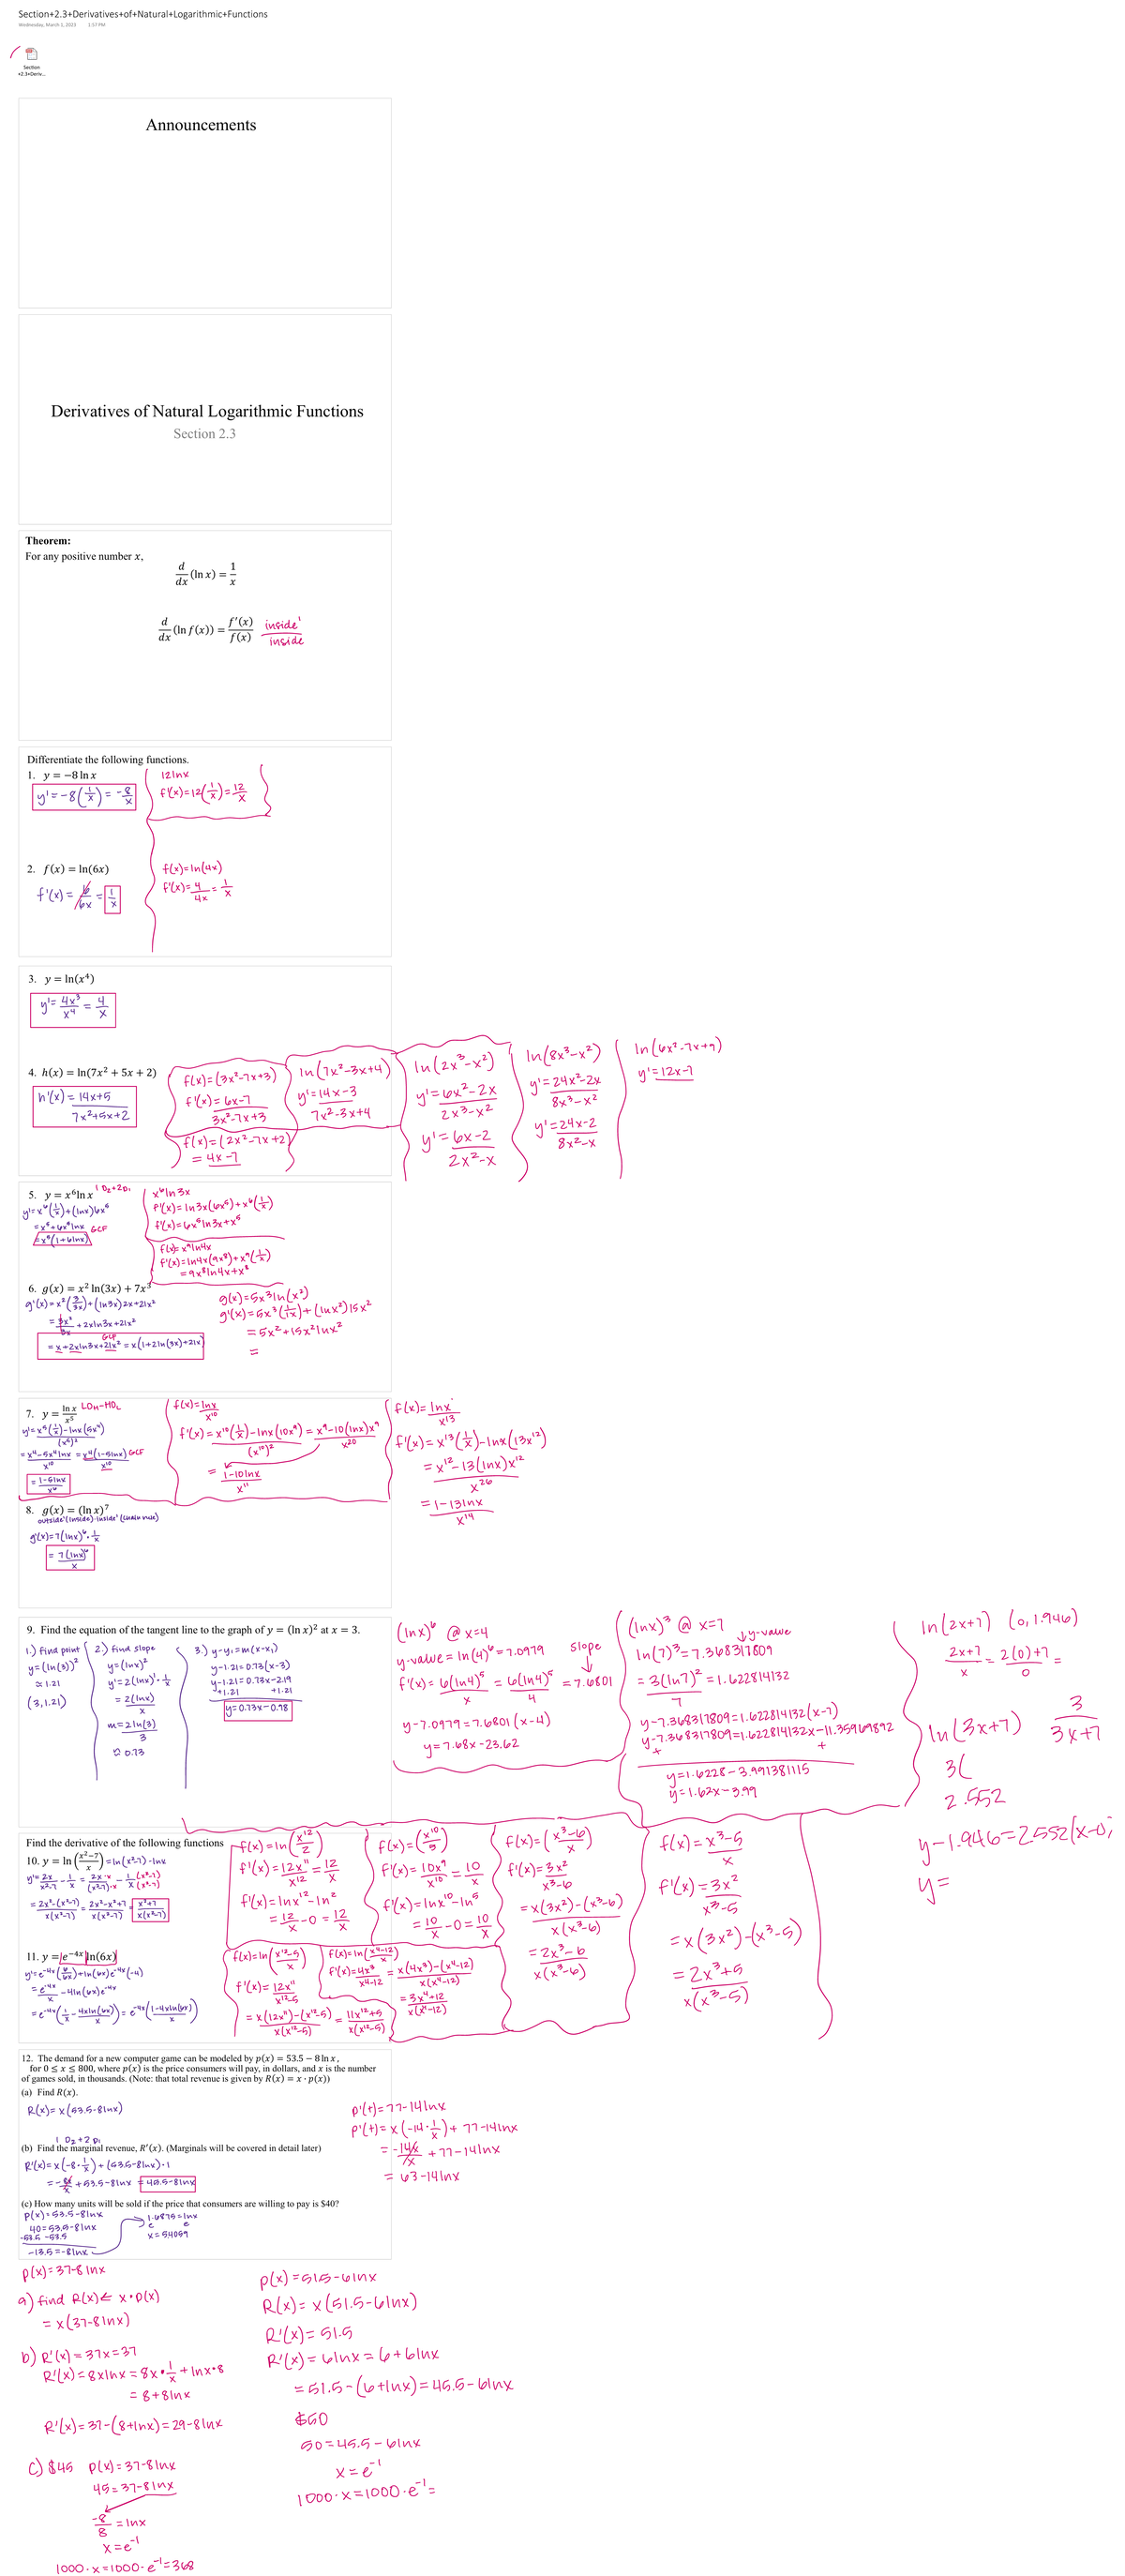 Section+2.3+Derivatives+of+Natural+Logarithmic+Functions
Wednesday, March 1, 2023 1:57 PM
Section
+2.3+Deriv...
Announcements
Derivatives of Natural Logarithmic Functions
Section 2.3
Theorem:
For any positive number x,
d/dx (ln x) = 1/x
d/dx (ln f(x)) = f'(x)/f(x) inside'/inside
Differentiate the following functions.
1. y = −8 ln x
y' = -8(1/x) = -8/x
12lnx
f'(x)=12(1/x)=12/x
2. f(x) = ln(6x)
f'(x) = 6/6x = 1/x
f(x)=ln(4x)
f'(x)=4/4x=1/x
3. y = ln(x⁴)
y'=4x³/x⁴=4/x
4. h(x) = ln(7x² + 5x + 2)
h'(x)=14x+5/7x²+5x+2
f(x)=(3x²-7x+3)
f'(x)=6x-7/3x²-7x+3
f(x)=(2x²-7x+2)
=4x-7
ln(7x²-3x+4)
y'=14x-3/7x²-3x+4
ln(2x³-x²)
y'=6x²-2x/2x³-x²
y'=6x-2/2x²-x
ln(8x³-x²)
y'=24x²-2x/8x³-x²
y'=24x-2/8x²-x
ln(6x²-7x+9)
y'=12x-7
5. y = x⁶ ln x 1D₂+2D₁
y'=x⁶(1/x)+(lnx)6x⁵
=x⁵+6x⁵lnx GCF
=x⁵(1+6lnx)
x⁶ln3x
f'(x)=ln3x(6x⁵)+x⁶(1/x)
f'(x)=6x⁵ln3x+x⁵
f(x)=x⁹ln4x
f'(x)=ln4x(9x⁸)+x⁹(1/x)
=9x⁸ln4x+x⁸
6. g(x) = x² ln(3x) + 7x³
g'(x)=x²(3/3x)+(ln3x)2x+21x²
=3x²/3x+2xln3x+21x²
GCF
=x+2xln3x+21x²=x(1+2ln(3x)+21x)
g(x)=5x³ln(x²)
g'(x)=5x³(1/1x)+(lnx²)15x²
=5x²+15x²lnx²
=
7. y = ln x/x⁵ LDH-HDL
y'=x⁵(1/x)-lnx(5x⁴)/(x⁵)²
=x⁴-5x⁴lnx/x¹⁰=x⁴(1-5lnx)/x¹⁰ GCF
=1-5lnx/x⁶
f(x)=lnx/x¹⁰
f'(x)=x¹⁰(1/x)-lnx(10x⁹)/(x¹⁰)²=x⁹-10(lnx)x⁹/x²⁰
=1-10lnx/x¹¹
f(x)=lnx/x¹³
f'(x)=x¹³(1/x)-lnx(13x¹²)
=x¹²-13(lnx)x¹²/x²⁶
=1-13lnx/x¹⁴
8. g(x) = (ln x)⁷
outside'(inside)·inside' (chain rule)
g'(x)=7(lnx)⁶·1/x
=7(lnx)⁶/x
9. Find the equation of the tangent line to the graph of y = (ln x)² at x = 3.
1.) find point
y=(ln(3))²
≈1.21
(3,1.21)
2.) find slope
y=(lnx)²
y'=2(lnx)¹·1/x
=2(lnx)/x
m=2ln(3)/3
≈0.73
3.) y-y₁=m(x-x₁)
y-1.21=0.73(x-3)
y-1.21=0.73x-2.19
+1.21 +1.21
y=0.73x-0.98
(lnx)⁶ @ x=4
y-value=ln(4)⁶=7.0979 slope
f'(x)=6(ln4)⁵/x=6(ln4)⁵/4=7.6801
y-7.0979=7.6801(x-4)
y=7.68x-23.62
(lnx)³ @ x=7
y-value
ln(7)³=7.368317809
=3(ln7)²/7=1.622814132
y-7.368317809=1.622814132(x-7)
y-7.368317809=1.622814132x-11.35969892
+ +
y=1.6228-3.991381115
y=1.62x-3.99
ln(2x+7) (0,1.946)
2x+7/x=2(0)+7/0=
ln(3x+7) 3/3x+7
3(
2.552
y-1.946=2552(x-0)
y=
Find the derivative of the following functions
10. y = ln(x²−7/x)=ln(x²-7)-lnx
y'=2x/x²-7-1/x=2x·x/(x²-7)·x-1/x(x²-7)/(x²-7)
=2x²-(x²-7)/x(x²-7)=2x²-x²+7/x(x²-7)=x²+7/x(x²-7)
f(x)=ln(x¹²/2)
f'(x)=12x¹¹/x¹²=12/x
f'(x)=lnx¹²-ln²
=12/x-0=12/x
f(x)=(x¹⁰/5)
f'(x)=10x⁹/x¹⁰=10/x
f'(x)=lnx¹⁰-ln⁵
=10/x-0=10/x
f(x)=(x³-6/x)
f'(x)=3x²/x³-6
=x(3x²)-(x³-6)/x(x³-6)
=2x³-6/x(x³-6)
f(x)=x³-5/x
f'(x)=3x²/x³-5
=x(3x²)-(x³-5)
=2x³+5/x(x³-5)
11. y = e⁻⁴ˣ ln(6x)
y'=e⁻⁴ˣ(6/6x)+ln(6x)e⁻⁴ˣ(-4)
=e⁻⁴ˣ/x-4ln(6x)e⁻⁴ˣ
=e⁻⁴ˣ(1/x-4xln(6x)/x)=e⁻⁴ˣ(1-4xln(6x)/x)
f(x)=ln(x¹²-5/x)
f'(x)=12x¹¹/x¹²-5
=x(12x¹¹)-(x¹²-5)/x(x¹²-5)=11x¹²+5/x(x¹²-5)
f(x)=ln(x⁴-12/x)
f'(x)=4x³/x⁴-12=x(4x³)-(x⁴-12)/x(x⁴-12)
=3x⁴+12/x(x⁴-12)
12. The demand for a new computer game can be modeled by p(x) = 53.5 − 8 ln x,
for 0 ≤ x ≤ 800, where p(x) is the price consumers will pay, in dollars, and x is the number
of games sold, in thousands. (Note: that total revenue is given by R(x) = x · p(x))
(a) Find R(x).
R(x)=x(53.5-8lnx)
1 D₂+2 D₁
(b) Find the marginal revenue, R'(x). (Marginals will be covered in detail later)
R'(x)=x(-8·1/x)+(53.5-8lnx)·1
=-8x/x+53.5-8lnx=45.5-8lnx
p'(t)=77-14lnx
p'(t)=x(-14·1/x)+77-14lnx
=-14x/x+77-14lnx
=63-14lnx
(c) How many units will be sold if the price that consumers are willing to pay is $40?
p(x)=53.5-8lnx
40=53.5-8lnx
-53.5 -53.5
-13.5=-8lnx
1.6875=lnx
e e
x=54059
p(x)=37-8lnx
a) find R(x)← x·p(x)
=x(37-8lnx)
b) R'(x)=37x=37
R'(x)=8xlnx=8x·1/x+lnx·8
=8+8lnx
R'(x)=37-(8+lnx)=29-8lnx
c) $45 p(x)=37-8lnx
45=37-8lnx
-8/8=lnx
x=e⁻¹
1000·x=1000·e⁻¹=368
p(x)=51.5-6lnx
R(x)=x(51.5-6lnx)
R'(x)=51.5
R'(x)=6lnx=6+6lnx
=51.5-(6+lnx)=45.5-6lnx
$50
50=45.5-6lnx
x=e⁻¹
1000·x=1000·e⁻¹=